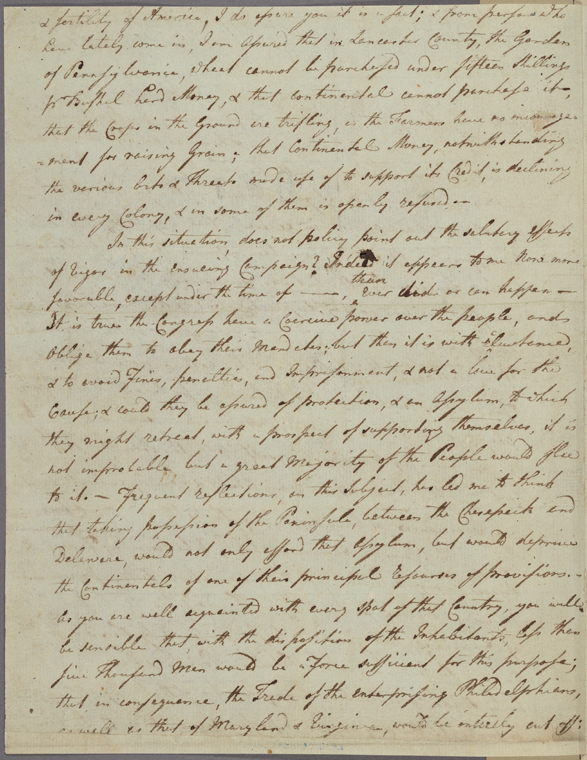 & fertility of America, I do assure you it is a fact; & from persons who
have lately come in, I am assured that in Lancaster County, the Garden
of Pennsylvania, Wheat cannot be purchased under fifteen Shillings
pr Bushel hard Money, & that continental cannot purchase it,
that the Crops in the Ground are trifling, as the Farmers have no incourage-
-ment for raising Grain; that Continental Money, notwithstanding
the various Arts & Threats made use of to support its Credit, is declining
in every Colony, & in some of them is openly refused —
In this situation, does not policy point out the salutary effects
of Vigor in the ensueing Campaign? Indeed it appears to me None more
favorable, except under the time of ——, than ever did or can happen —
It is true the Congress have a Coercive power over the people, and
oblige them to obey their Mandates; but then it is with reluctance,
& to avoid Fines, penalties, and Imprisonment, & not a love for the
Cause; & could they be assured of protection, & an Assylum, to which
they might retreat, with a prospect of supporting themselves, it is
not improbable but a great Majority of the People would flee
to it. — Frequent reflections, on this Subject, has led me to think
that taking possession of the Peninsula, between the Chesepeak and
Delaware, would not only afford that Assylum, but would deprive
the Continentals of one of their principal resourses of provisions. -
As you are well acquainted with every spot of that Country, you will
be sensible that, with the disposition of the Inhabitants, less than
five Thousand Men would be a Force sufficient for this purpose;
that in consequence, the Trade of the enterprising Philadelphians,
as well as that of Maryland & Virginia, would be entirely cut off: